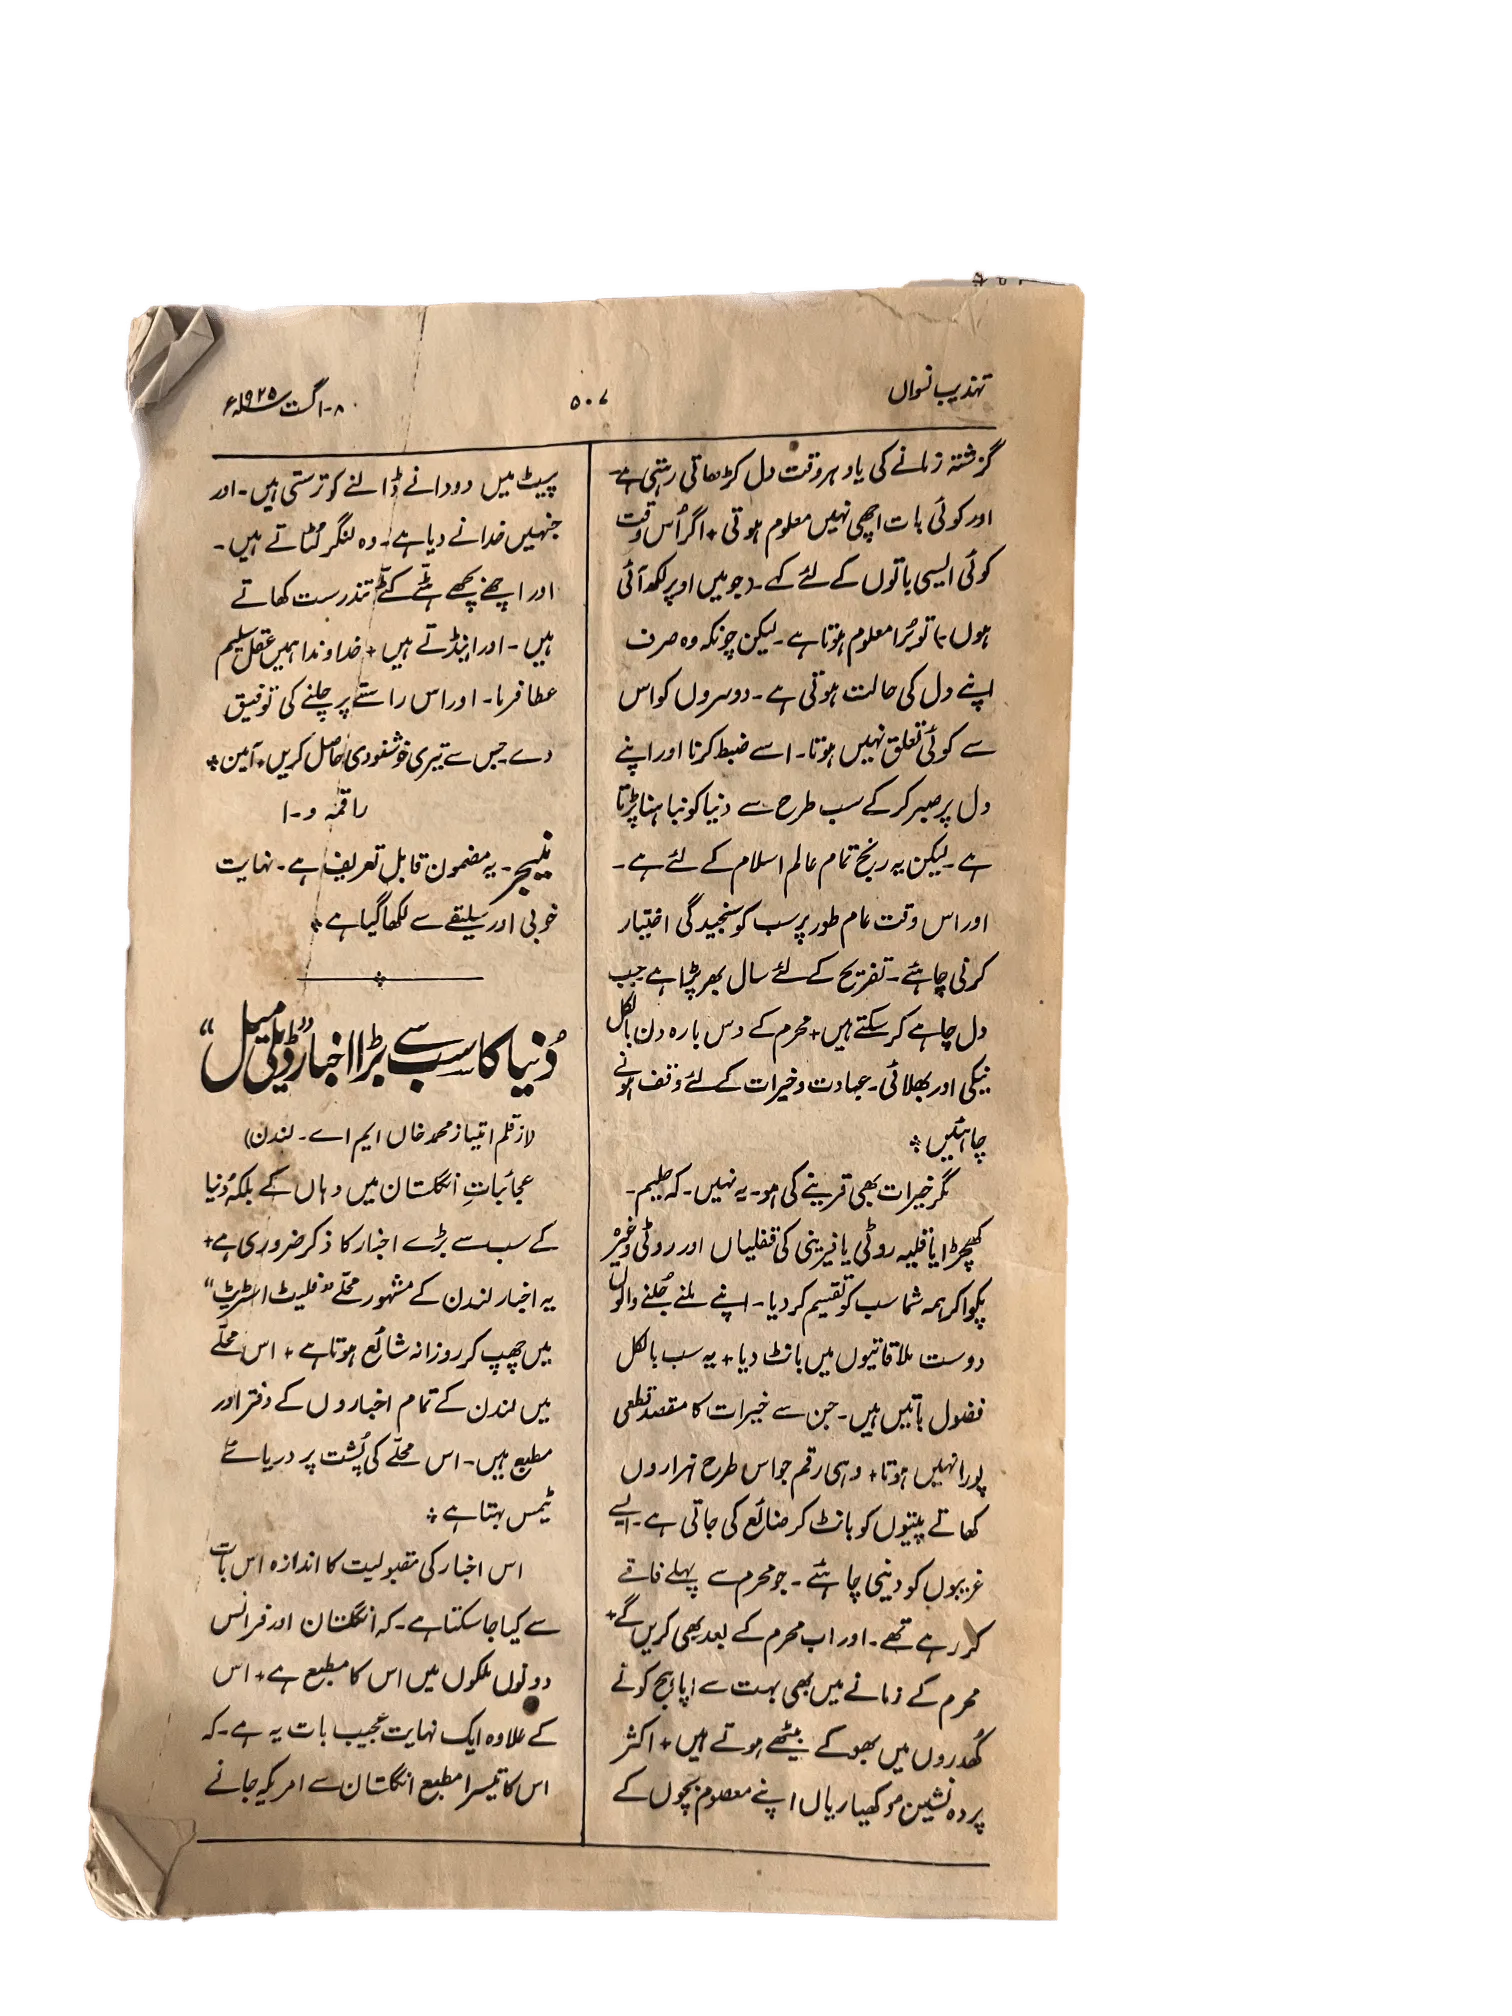 تہذیب نسواں
۵۰۷
۸۔ اگست ۱۹۲۵ء
گزشتہ زمانے کی یاد ہر وقت دل کڑھاتی رہتی ہے۔
اور کوئی بات اچھی نہیں معلوم ہوتی + اگر اُس وقت
کوئی ایسی باتوں کے لئے کہے۔ (جو میں اوپر لکھ آئی
ہوں) تو بُرا معلوم ہوتا ہے۔ لیکن چونکہ وہ صرف
اپنے دل کی حالت ہوتی ہے۔ دوسروں کو اس
سے کوئی تعلق نہیں ہوتا۔ اسے ضبط کرنا اور اپنے
دل پر صبر کر کے سب طرح سے دنیا کو نباہنا پڑتا
ہے۔ لیکن یہ رنج تمام عالم اسلام کے لئے ہے۔
اور اس وقت عام طور پر سب کو سنجیدگی اختیار
کرنی چاہئے۔ تفریح کے لئے سال بھر پڑا ہے جب
دل چاہے کر سکتے ہیں + محرم کے دس بارہ دن بالکل
نیکی اور بھلائی۔ عبادت و خیرات کے لئے وقف ہونے
چاہئیں ÷
مگر خیرات بھی قرینے کی ہو۔ یہ نہیں۔ کہ حلیم۔
کھچڑا یا قلیہ روٹی یا فیرینی کی قفلیاں اور روٹی وغیرہ
پکوا کر ہمہ شما سب کو تقسیم کر دیا۔ اپنے ملنے جُلنے والوں
دوست ملاقاتیوں میں بانٹ دیا + یہ سب بالکل
فضول باتیں ہیں۔ جن سے خیرات کا مقصد قطعی
پورا نہیں ہوتا + وہی رقم جو اس طرح ہزاروں
کھاتے پیتوں کو بانٹ کر ضائع کی جاتی ہے۔ ایسے
غریبوں کو دینی چاہئے۔ جو محرم سے پہلے فاقے
کر رہے تھے۔ اور اب محرم کے بعد بھی کریں گے +
محرم کے زمانے میں بھی بہت سے اپاہج کونے
کھُدروں میں بھوکے بیٹھے ہوتے ہیں + اکثر
پردہ نشین موکھیاریاں اپنے معصوم بچوں کے
پیٹ میں دو دانے ڈالنے کو ترستی ہیں۔ اور
جنہیں خدا نے دیا ہے۔ وہ لنگر لُٹاتے ہیں۔
اور اچھے بچھے ہٹّے کٹّے تندرست کھاتے
ہیں۔ اور اینڈتے ہیں + خداوندا ہمیں عقل سلیم
عطا فرما۔ اور اس راستے پر چلنے کی توفیق
دے۔ جس سے تیری خوشنودی حاصل کریں۔ آمین ÷
راقمہ و۔ ا
منیجر۔ یہ مضمون قابل تعریف ہے۔ نہایت
خوبی اور سلیقے سے لکھا گیا ہے ÷
دُنیا کا سب سے بڑا اخبار "ڈیلی میل"
(از قلم امتیاز محمد خاں ایم اے۔ لندن)
عجائباتِ انگلستان میں وہاں کے بلکہ دُنیا
کے سب سے بڑے اخبار کا ذکر ضروری ہے +
یہ اخبار لندن کے مشہور محلّے "فلیٹ اسٹریٹ"
میں چھپ کر روزانہ شائع ہوتا ہے + اس محلّے
میں لندن کے تمام اخباروں کے دفتر اور
مطبع ہیں۔ اس محلّے کی پُشت پر دریائے
ٹیمس بہتا ہے ÷
اس اخبار کی مقبولیت کا اندازہ اس بات
سے کیا جا سکتا ہے۔ کہ انگلستان اور فرانس
دونوں ملکوں میں اس کا مطبع ہے + اس
کے علاوہ ایک نہایت عجیب بات یہ ہے۔ کہ
اس کا تیسرا مطبع انگلستان سے امریکہ جانے